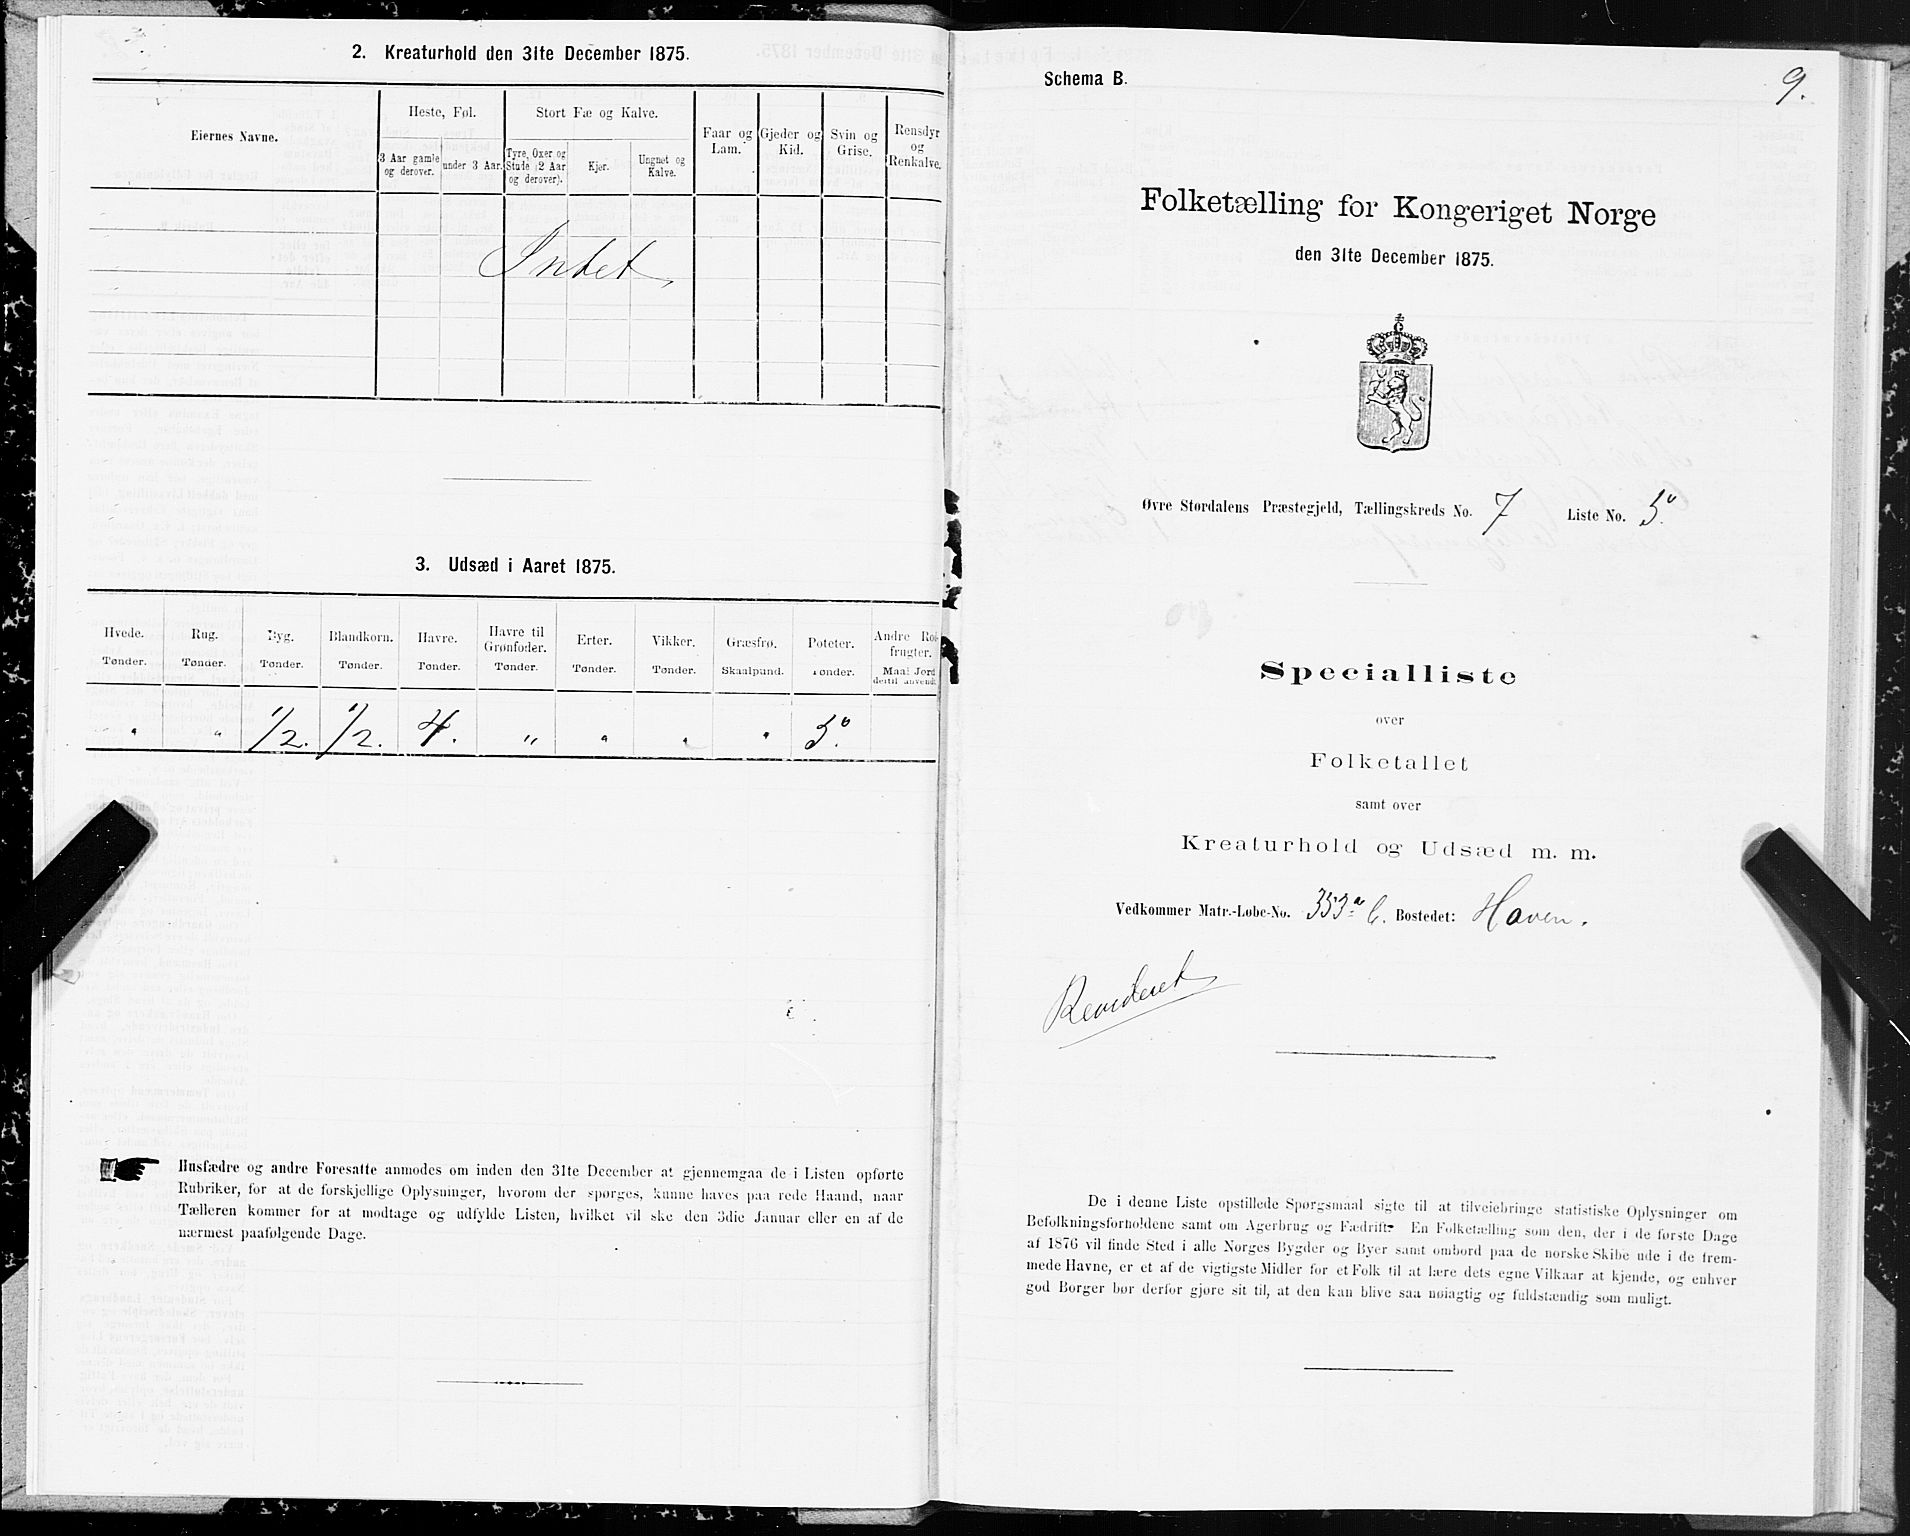 2. Kreaturhold den 31te December 1875.
Eiernes Navne.
Heste, Føl.
Stort Fæ og Kalve.
Faar og Lam.
Gjeder og Kid.
Svin og Grise.
Rensdyr og Renkalve.
3 Aar gamle og derover.
under 3 Aar.
Tyre, Oxer og Stude (2 Aar og derover).
Kjør.
Ungnet og Kalve.
Intet
3. Udsæd i Aaret 1875.
Hvede. Rug. Byg. Blandkorn. Havre. Havre til Grønfoder. Erter. Vikker. Græsfrø. Poteter. Andre Rodfrugter.
Tønder. Tønder. Tønder. Tønder. Tønder. Tønder. Tønder. Tønder. Skaalpund. Tønder. Maal Jord dertil anvendt
" " 1/2. 1/2. 4. " " " " 5.
Husfædre og andre Foresatte anmodes om inden den 31te December at gjennemgaa de i Listen opførte
Rubriker, for at de forskjellige Oplysninger, hvorom der spørges, kunne haves paa rede Haand, naar
Tælleren kommer for at modtage og udfylde Listen, hvilket vil ske den 3die Januar eller en af de
nærmest paafølgende Dage.
Schema B.
9.
Folketælling for Kongeriget Norge
den 31te December 1875.
Øvre Stordalens Præstegjeld, Tællingskreds No. 7 Liste No. 5.
Specialliste
over
Folketallet
samt over
Kreaturhold og Udsæd m. m.
Vedkommer Matr.-Løbe-No. 353a b. Bostedet: Haven.
Revideret
De i denne Liste opstillede Spørgsmaal sigte til at tilveiebringe statistiske Oplysninger om
Befolkningsforholdene samt om Agerbrug og Fædrift. En Folketælling som den, der i de første Dage
af 1876 vil finde Sted i alle Norges Bygder og Byer samt ombord paa de norske Skibe ude i de frem-
mede Havne, er et af de vigtigste Midler for et Folk til at lære dets egne Vilkaar at kjende, og enhver
god Borger bør derfor gjøre sit til, at den kan blive saa nøiagtig og fuldstændig som muligt.